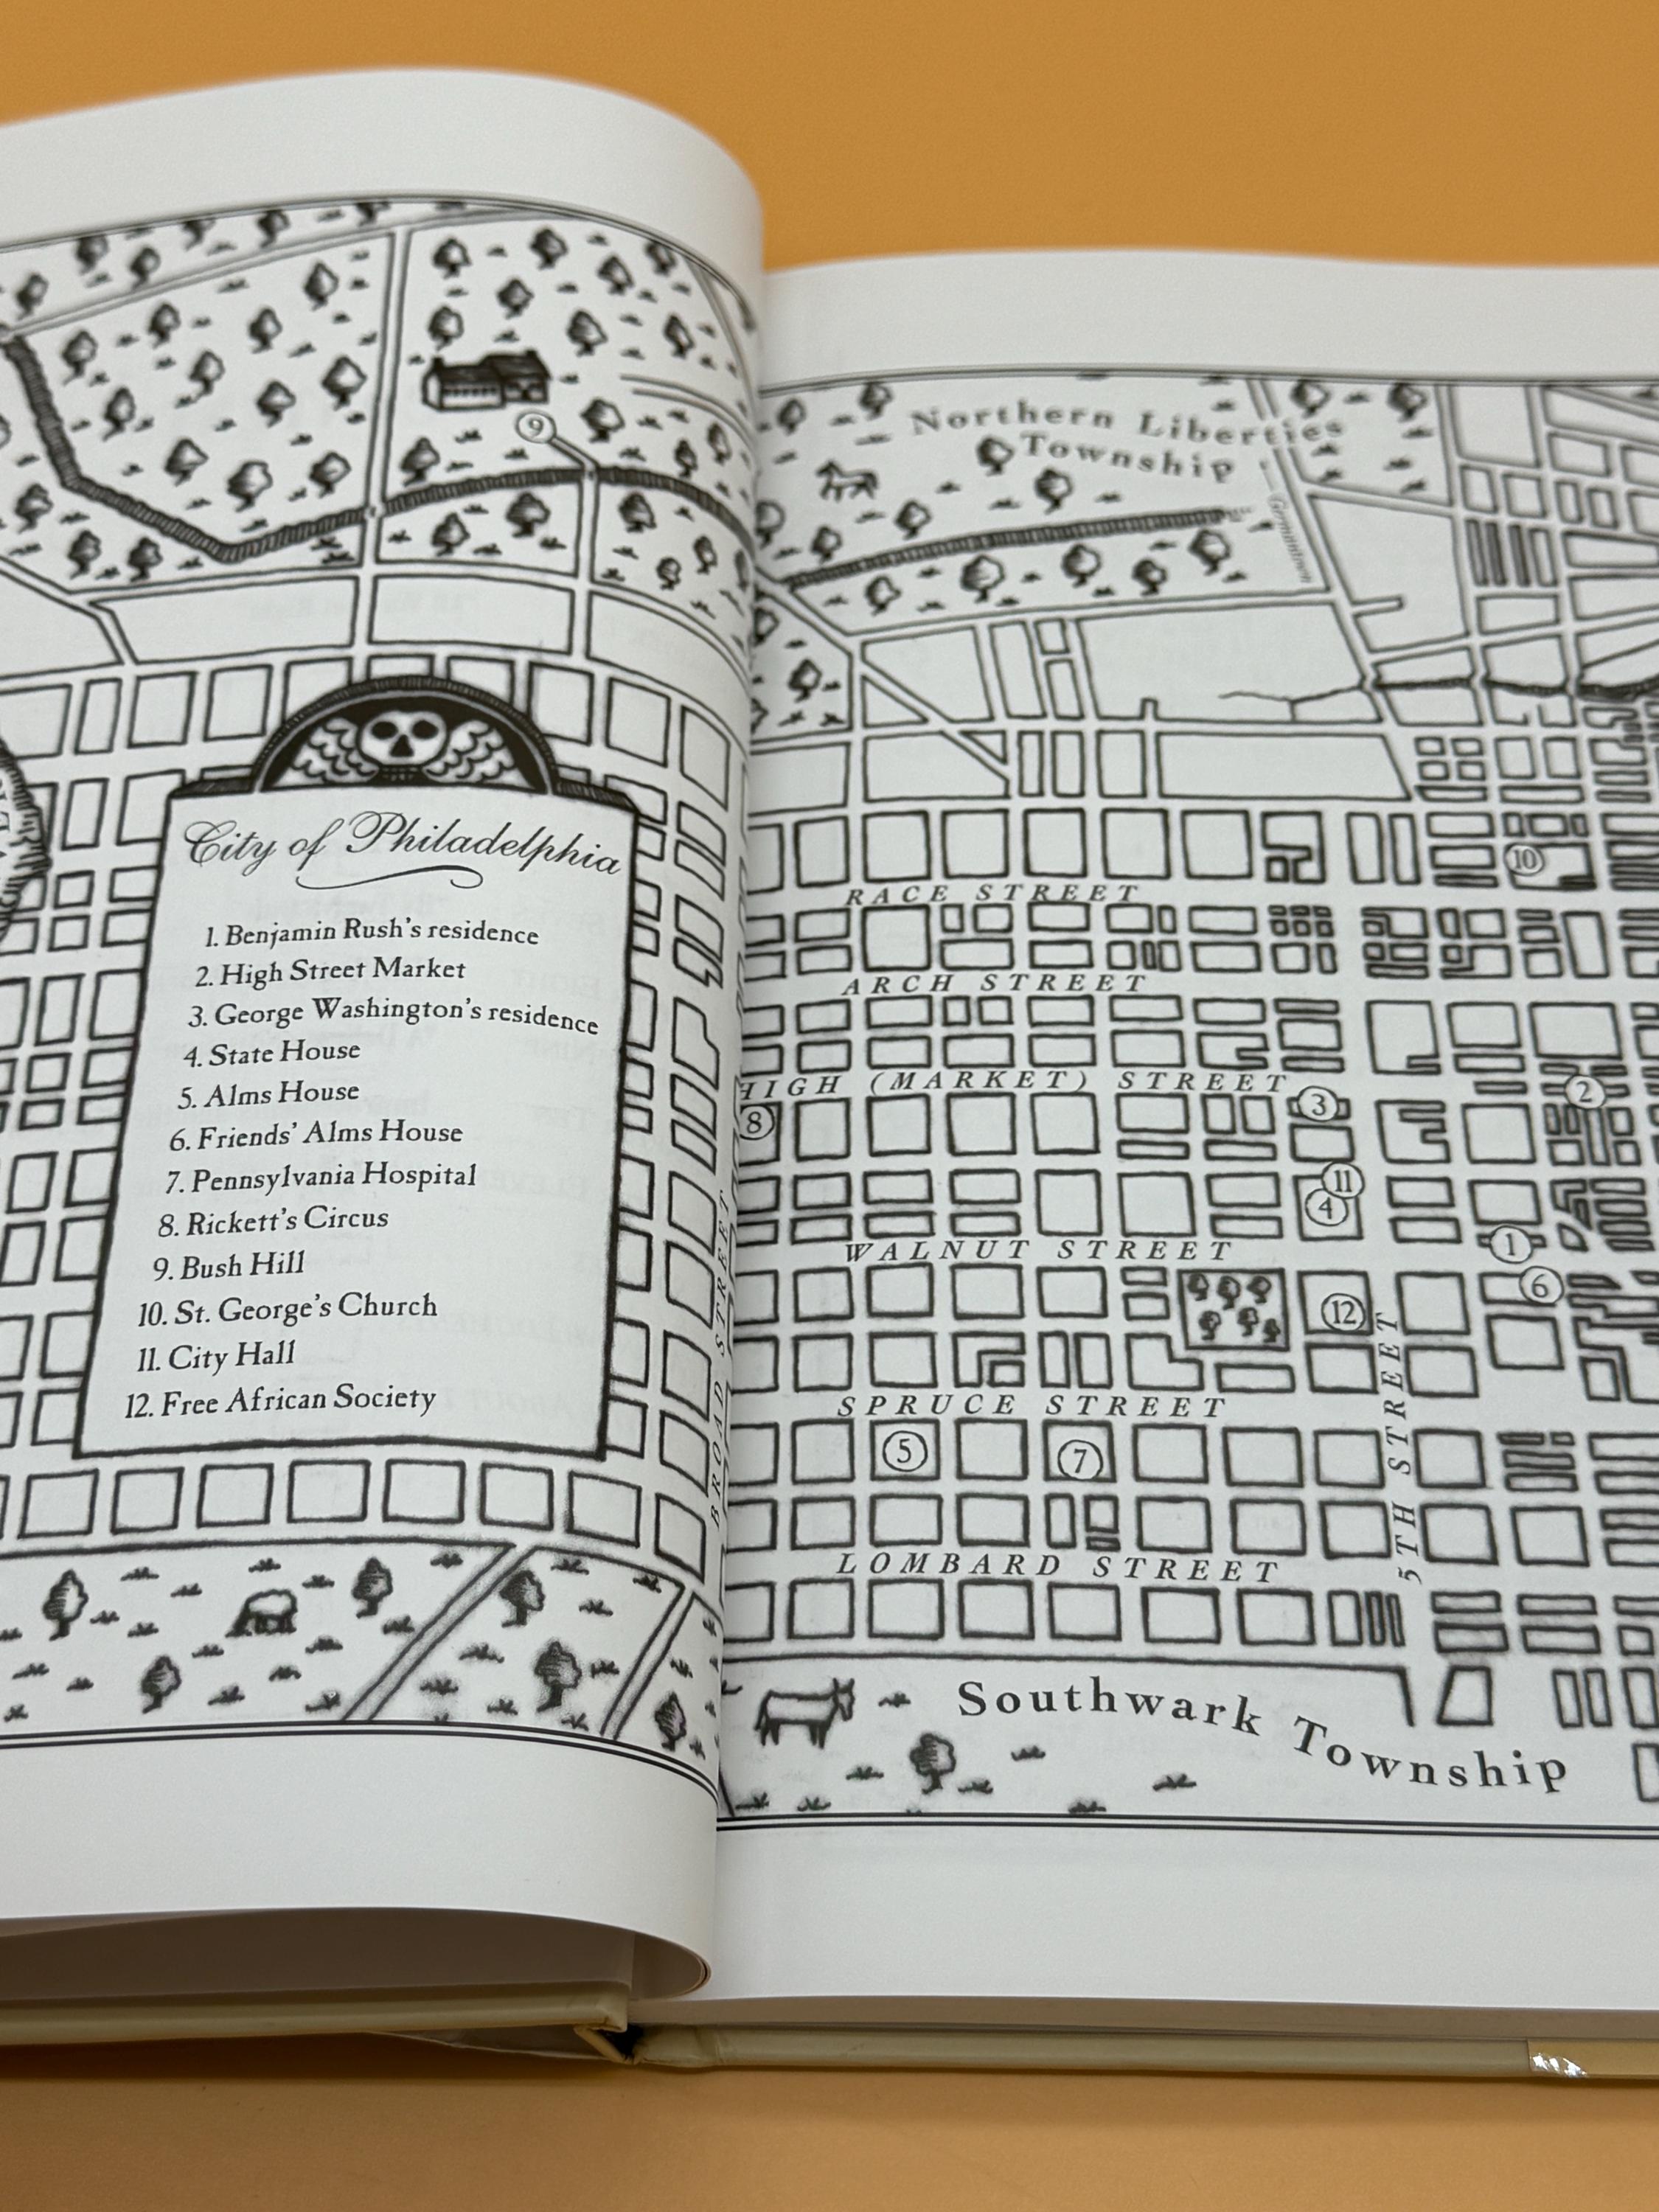 City of Philadelphia
1. Benjamin Rush's residence
2. High Street Market
3. George Washington's residence
4. State House
5. Alms House
6. Friends' Alms House
7. Pennsylvania Hospital
8. Rickett's Circus
9. Bush Hill
10. St. George's Church
11. City Hall
12. Free African Society
9
BROAD STREET
Northern Liberties
Township
Germantown
10
RACE STREET
ARCH STREET
HIGH (MARKET) STREET
2
3
8
11
4
WALNUT STREET
1
6
12
5TH STREET
SPRUCE STREET
5
7
LOMBARD STREET
Southwark Township